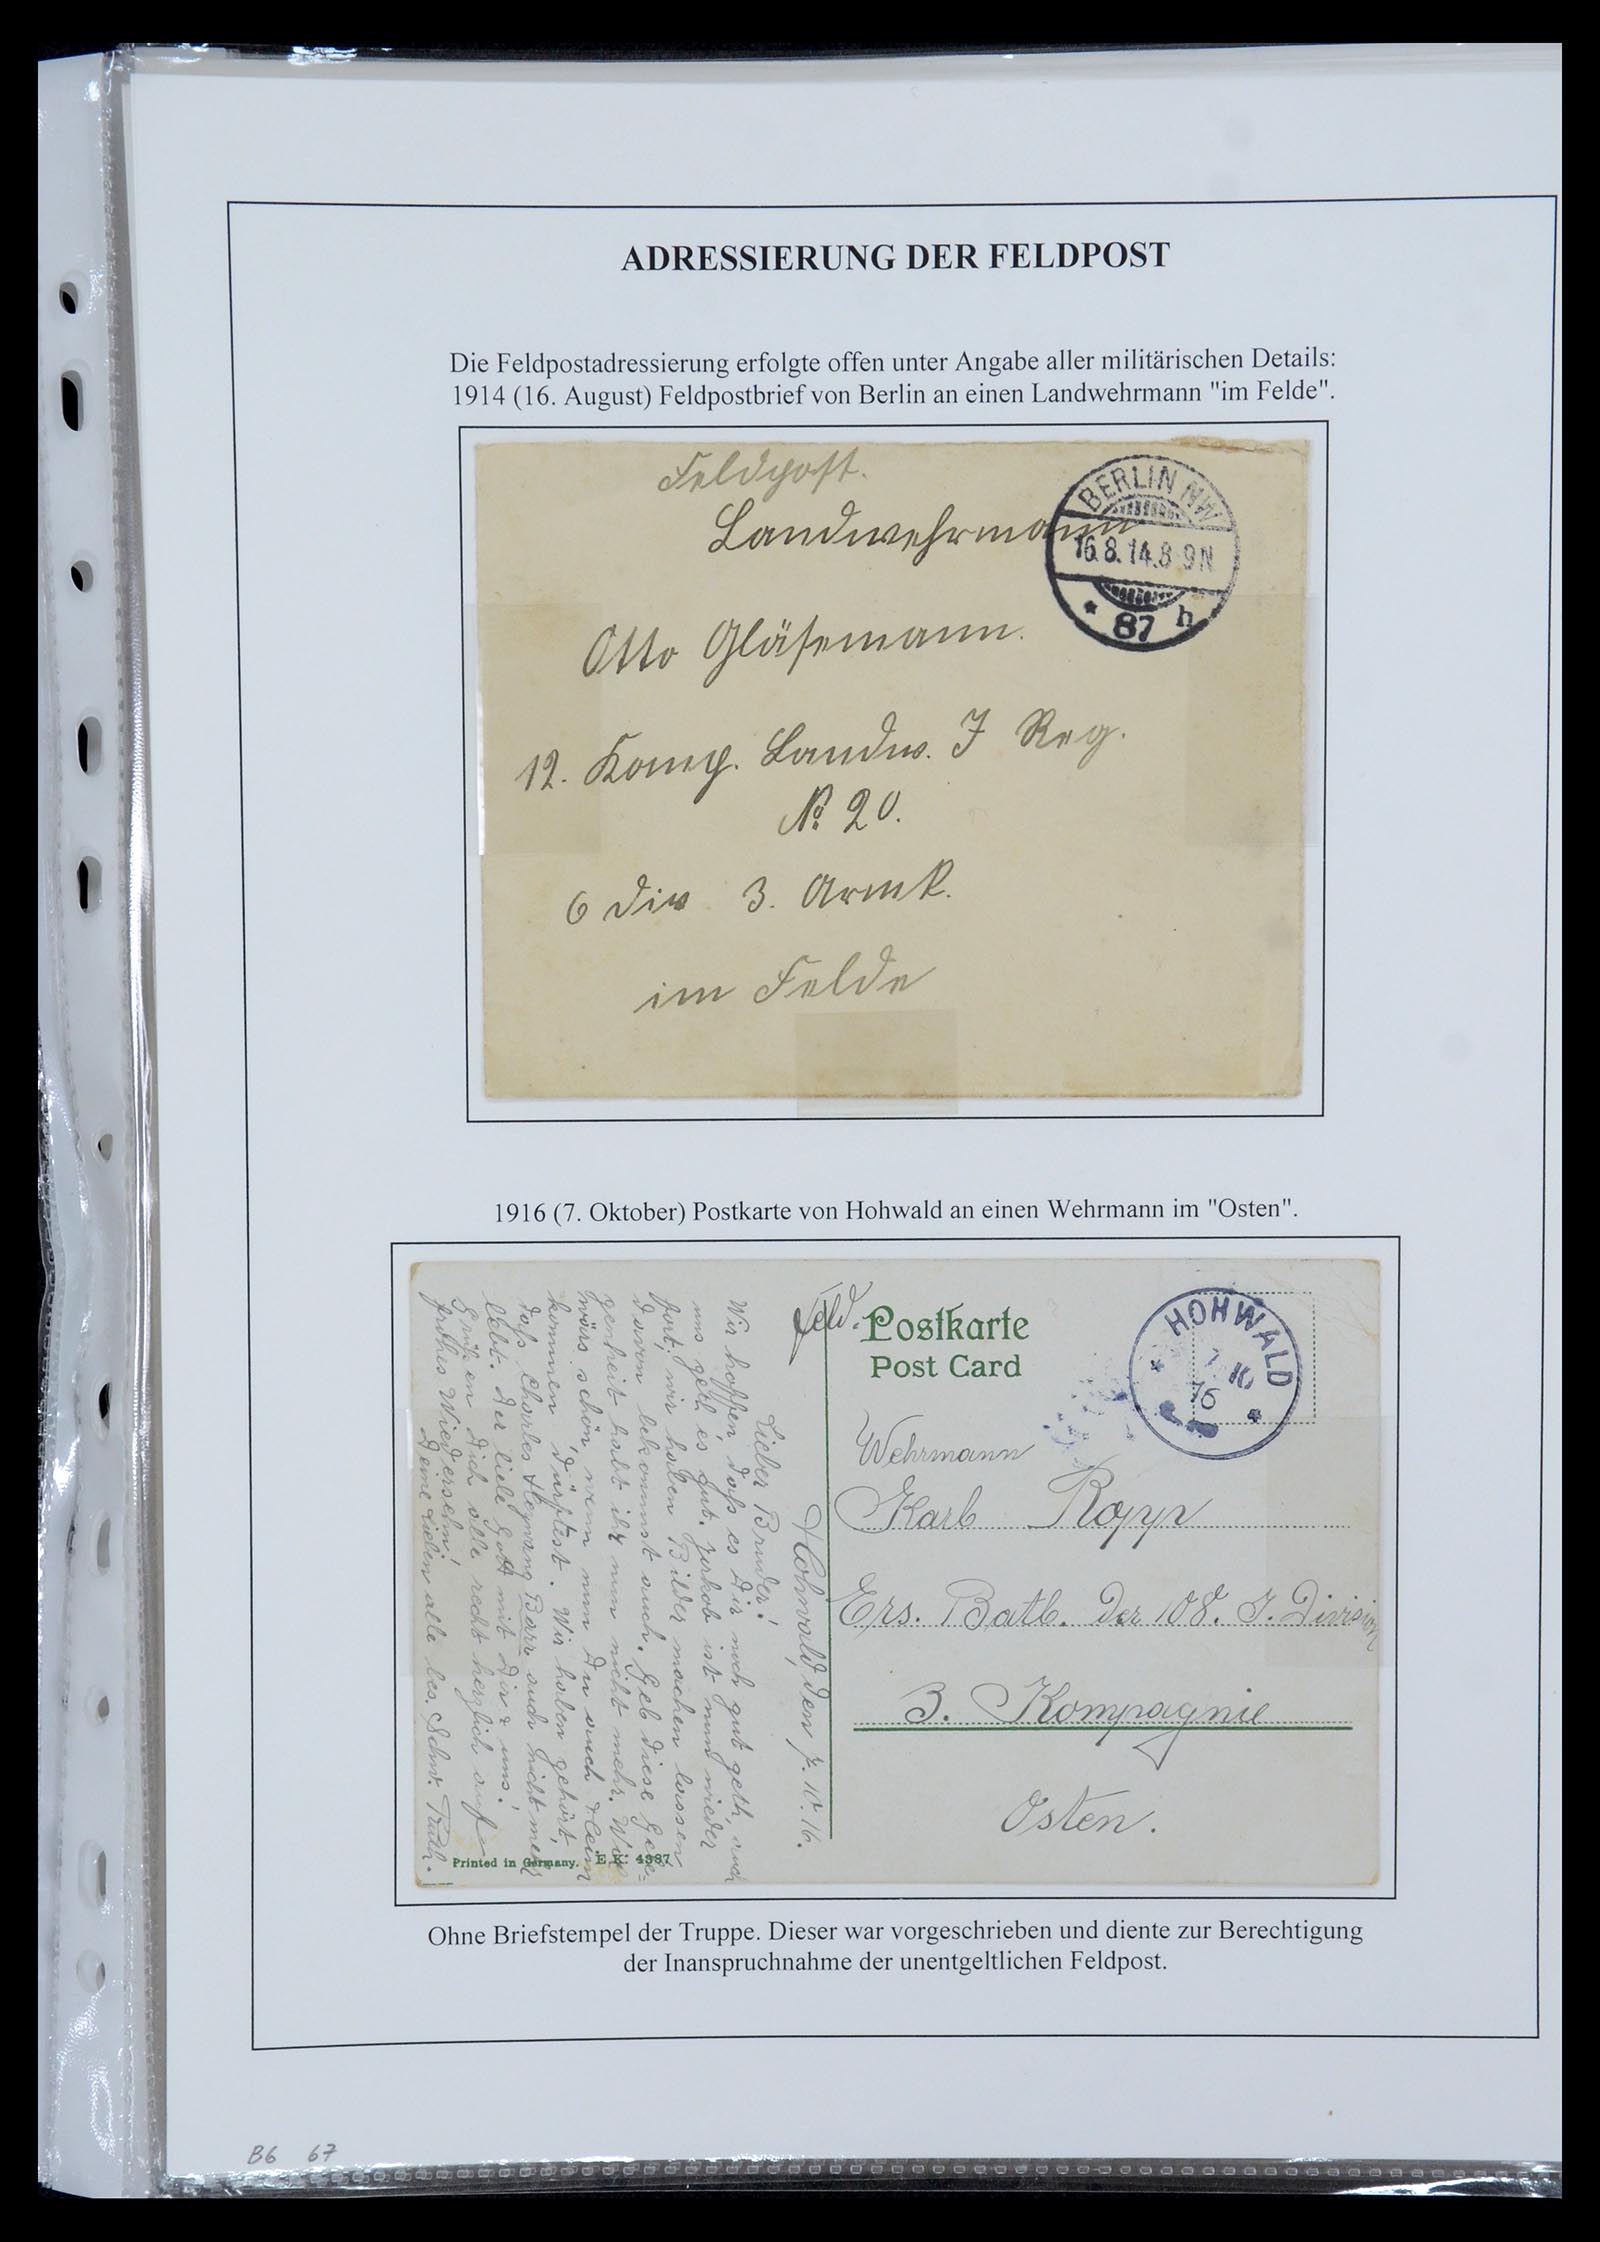 ADRESSIERUNG DER FELDPOST
Die Feldpostadressierung erfolgte offen unter Angabe aller militärischen Details:
1914 (16. August) Feldpostbrief von Berlin an einen Landwehrmann "im Felde".
Feldpost.
Landwehrmann
BERLIN NW
16.8.14.8-9N
* 87 h
Otto Gläsemann.
12. Komp. Landw. I Reg.
№ 20.
6 Div 3. Armk.
im Felde
1916 (7. Oktober) Postkarte von Hohwald an einen Wehrmann im "Osten".
Feld.
Postkarte
Post Card
HOHWALD
7 10
16
Wehrmann
Karl Ropp
Ers. Batl. der 108. I. Division
3. Kompagnie
Osten.
Hohwald, den 7. 10. 16.
Lieber Bruder!
Wir hoffen, daß es Dir noch gut geth, auch
uns geth es gut. Jakob ist nun wieder
fort, wir haben Bilder machen lassen
davon bekommst auch. Geb diese Gele=
genheit habt ihr nun nicht mehr. Wie
wärs schön wenn nun Du auch Heim
kommen dürftest. Wir haben gehört,
daß Charles Heywang Barr auch nicht mehr
lebt. Der liebe Gott mit Dir & uns!
Grüßen Dich alle recht herzlich auf
frohes Wiedersehn!
Deine Lieben alle bes. Schw.
Printed in Germany. E.K. 4387
Ohne Briefstempel der Truppe. Dieser war vorgeschrieben und diente zur Berechtigung
der Inanspruchnahme der unentgeltlichen Feldpost.
B6 67